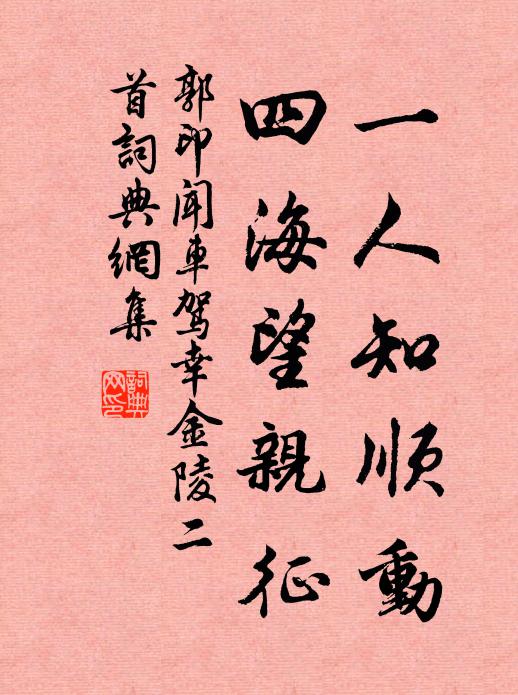 一人知順動
四海望親征
郭印聞車駕幸金陵二
首詞典網集
詞典
网印